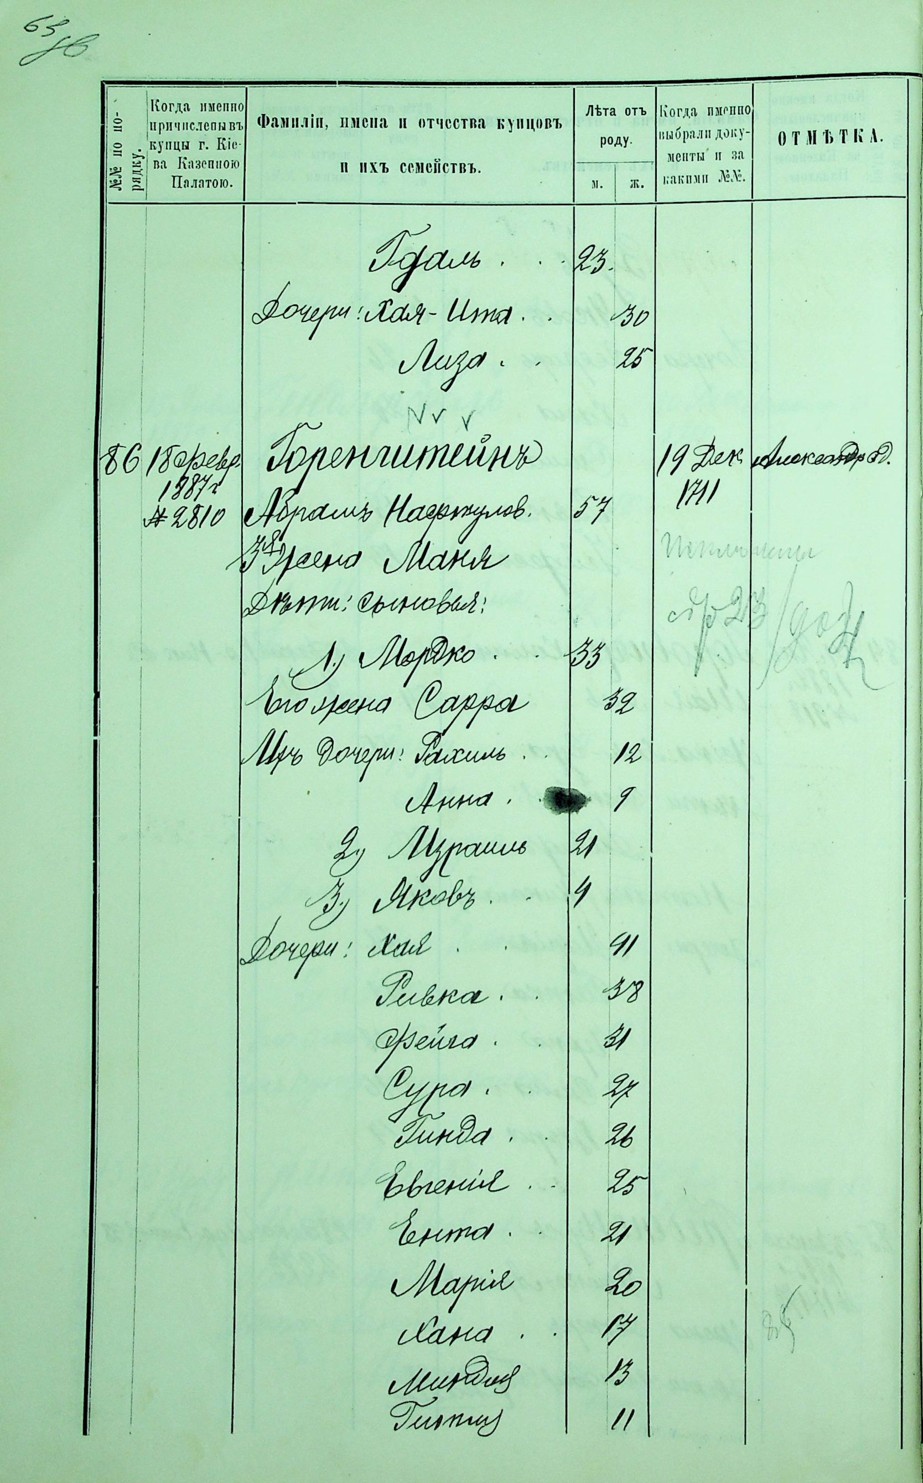 65
№№ по порядку.
Когда именно причислены въ купцы г. Кіева Казенною Палатою.
Фамиліи, имена и отчества купцовъ и ихъ семействъ.
Лѣта отъ роду.
м. ж.
Когда именно выбрали документы и за какими №№.
ОТМѢТКА.
Гдаль . . . 23.
Дочери: Хая-Ита . . 30
Лиза . . 25
86 18 февр. Горенштейнъ 19 Дек. Александр. д.
1887 г. 1711
№ 2810 Абрамъ Нафтулов. 57
жена Маня
Дѣти: сыновья:
1.) Мордко . . 33
Его жена Сарра 32
Ихъ дочери: Рахиль . . 12
Анна . . 9
2.) Израиль 21
3.) Яковъ . . 9
Дочери: Хая . . 41
Ривка . . 38
Фейга . . 31
Сура . . 27
Гинда . . 26
Евгенія . . 25
Ента . . 21
Марія 20
Хана . . 17
Миндля 13
Гитля 11